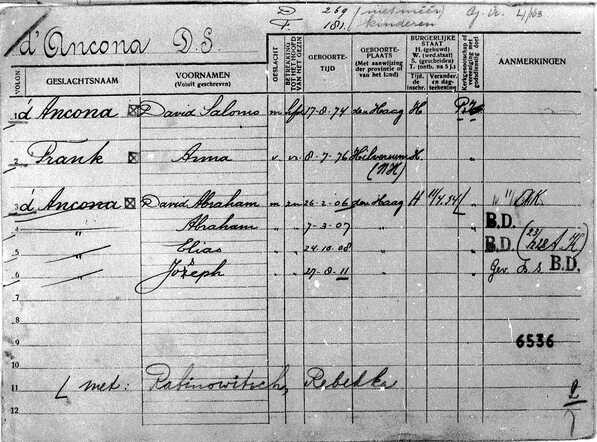 D 269 / niet méér
F 181. / kinderen
d'Ancona D.S.
VOLGN.
GESLACHTSNAAM
VOORNAMEN
(Voluit geschreven)
GESLACHT
BETREKKING TOT HET HOOFD VAN HET GEZIN
GEBOORTE-
TIJD
GEBOORTE-
PLAATS
(Met aanwijzing
der provincie of
van het land)
BURGERLIJKE
STAAT
H. (gehuwd)
W. (wed.staat)
S. (gescheiden)
T. (ontb. na 5 j.)
Tijd. de
inschr.
Verander.
en dag-
teekening
Kerkgenootschap of
vereeniging met
godsdienstig doel
AANMERKINGEN
1 d'Ancona David Salomo m hfd 17-8-74 den Haag H
2 Frank Anna v. vr 8-7-76 Hilversum H.
(N.H.)
3 d'Ancona David Abraham m zn 26-2-06 den Haag H
4 " Abraham " " 7-3-07 " B.D.
5 " Elias " " 24.10.08 " B.D.
6 " Jozeph " " 27-8-11 " B.D.
7
8
9 6536
10
11 met: Rabinowitsch, Rebekka
12